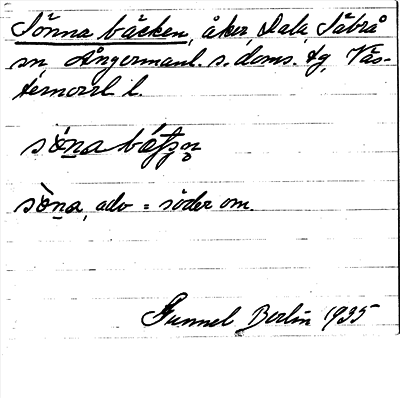 Sönna bäcken, åker, Dala, Säbrå
sn, Ångermanl. s. doms. tg, Väs-
ternorrl. l.
sö̀na
sö̀na, adv = söder om.
Gunnel Berlin 1935